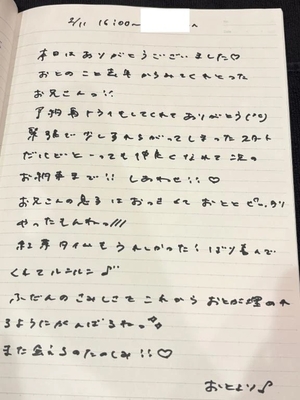 2/11 16:00〜 へ
本日はありがとうございました♡
おとのこと去年からみてくれとった
お兄さんっ!!
予約再トライもしてくれてありがとう(^o^)
緊張で少しふれがってしまったスタート
だけどとーっても仲良くなれて次の
お約束まで!! しあわせ!! ♡
お兄さんの息子はおっきくておととピッタリ
やったもんねっ///
紅茶タイムもうれしかった! ばり喜んで
くれてルンルン♪
ふだんのこみしこでこれからおとが埋めれ
るようにがんばるねっ
また会えるのたのしみ!! ♡
おとより♪